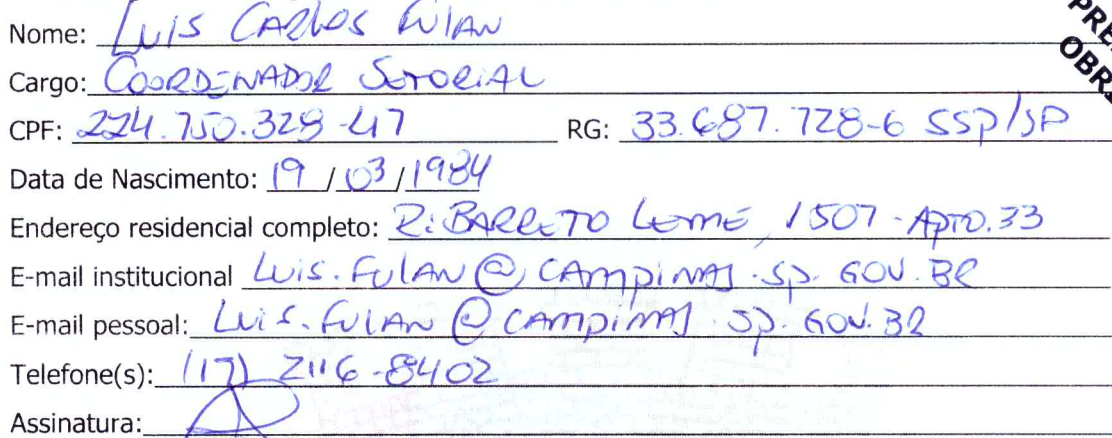 Nome: Luis Carlos Fulan
Cargo: Coordenador Setorial
CPF: 224.750.328-47 RG: 33.687.728-6 SSP/SP
Data de Nascimento: 19/03/1984
Endereço residencial completo: R: Barreto Leme, 1507 - Apto. 33
E-mail institucional Luis.Fulan@campinas.sp.gov.br
E-mail pessoal: Luis.Fulan@campinas.sp.gov.br
Telefone(s): (17) 2116-8402
Assinatura: